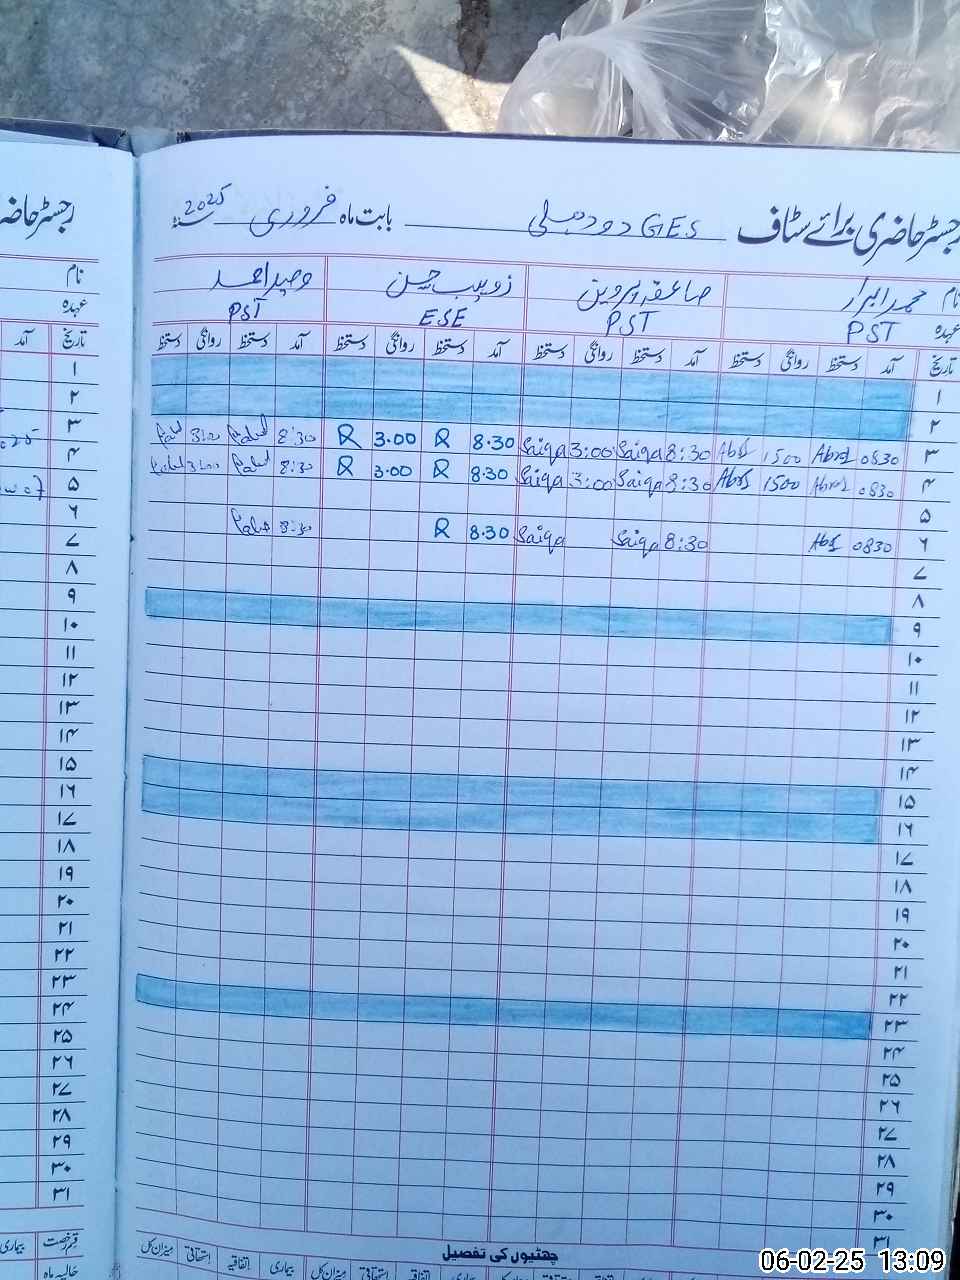 رجسٹر حاضری برائے سٹاف GES دودہلی بابت ماہ فروری سنہ 2025
نام محمد ابرار صاعقہ پروین زوہیب حسن وحید احمد
عہدہ PST PST ESE PST
تاریخ آمد دستخط روانگی دستخط آمد دستخط روانگی دستخط آمد دستخط روانگی دستخط آمد دستخط روانگی دستخط
۱
۲
۳ 0830 1500 8:30 Saiqa 3:00 Saiqa 8.30 R 3.00 R 8:30
۴ 0830 1500 8:30 Saiqa 3:00 Saiqa 8.30 R 3.00 R 8:30
۵
۶ 0830 8:30 Saiqa Saiqa 8.30 R 8:30
۷
۸
۹
۱۰
۱۱
۱۲
۱۳
۱۴
۱۵
۱۶
۱۷
۱۸
۱۹
۲۰
۲۱
۲۲
۲۳
۲۴
۲۵
۲۶
۲۷
۲۸
۲۹
۳۰
۳۱
چھٹیوں کی تفصیل
بیماری اتفاقیہ استحقاقی میزان کل
رجسٹر حاضری
نام
عہدہ
تاریخ آمد
۱
۲
۳
۴
۵
۶
۷
۸
۹
۱۰
۱۱
۱۲
۱۳
۱۴
۱۵
۱۶
۱۷
۱۸
۱۹
۲۰
۲۱
۲۲
۲۳
۲۴
۲۵
۲۶
۲۷
۲۸
۲۹
۳۰
۳۱
قسم رخصت بیماری
حالیہ ماہ
06-02-25 13:09